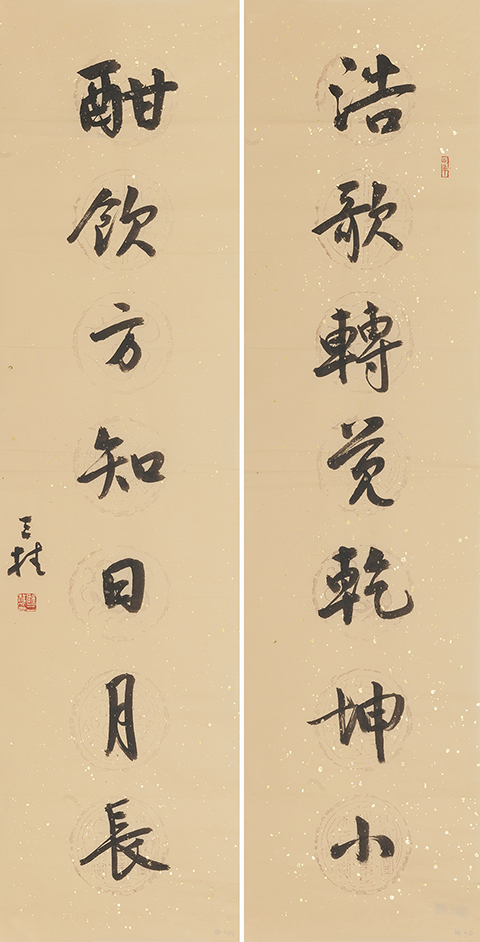 浩歌轉覓乾坤小
酣飲方知日月長